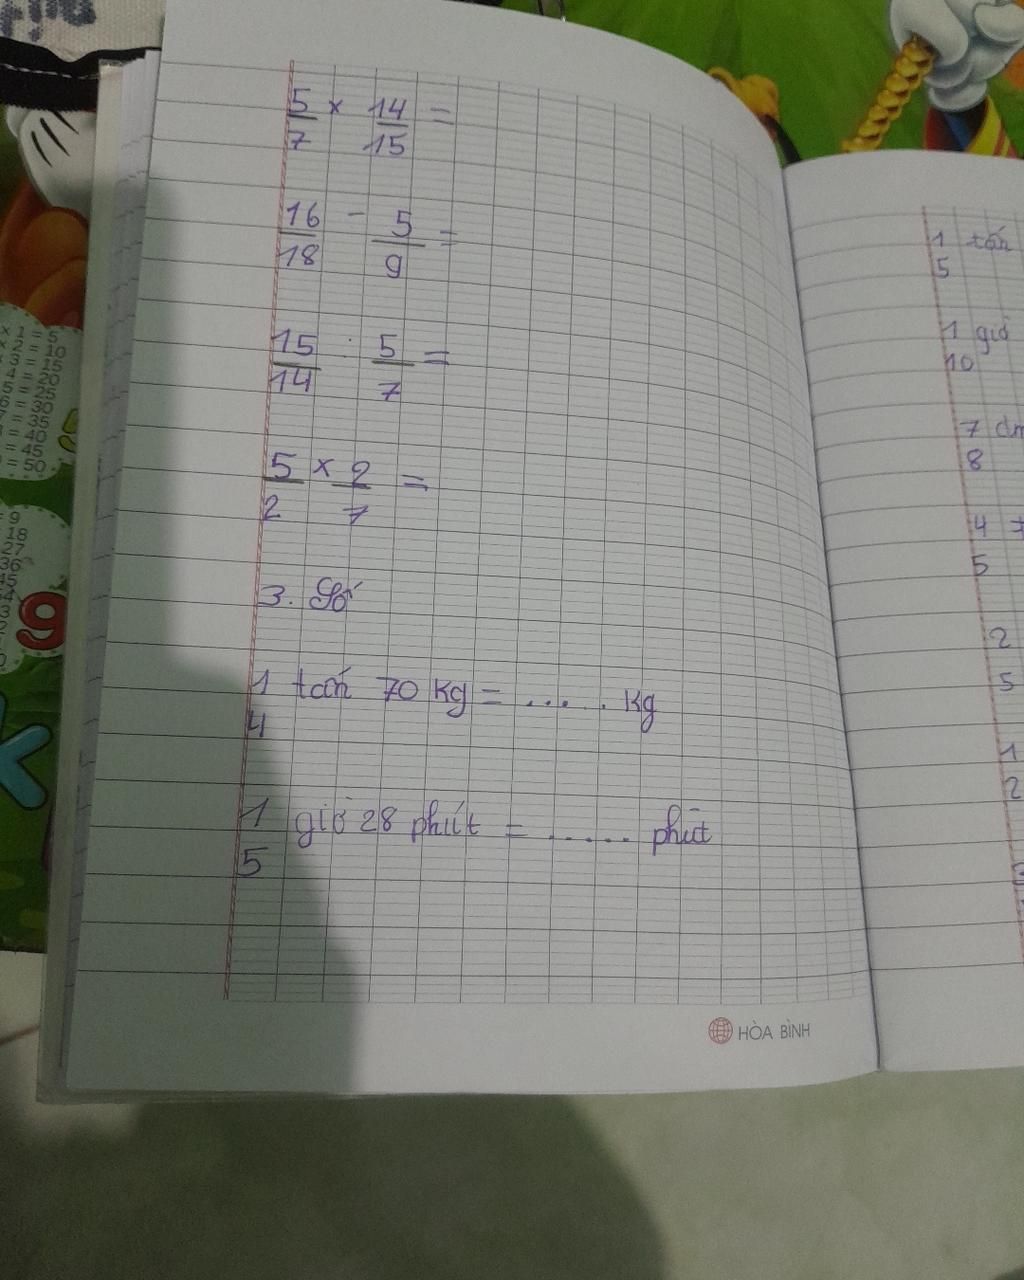 5/7 × 14/15 =
16/18 - 5/9 =
15/14 : 5/7 =
5/2 × 2/7 =
3. Số
1/4 tấn 70 kg = ..... kg
1/5 giờ 28 phút = ...... phút
HÒA BÌNH
1/5 tấn
1/10 giờ
7/8
4/5
2/5
1/2
× 1 = 5
× 2 = 10
× 3 = 15
4 = 20
5 = 25
6 = 30
7 = 35
= 40
= 45
= 50
= 9
18
27
36
45
9
K